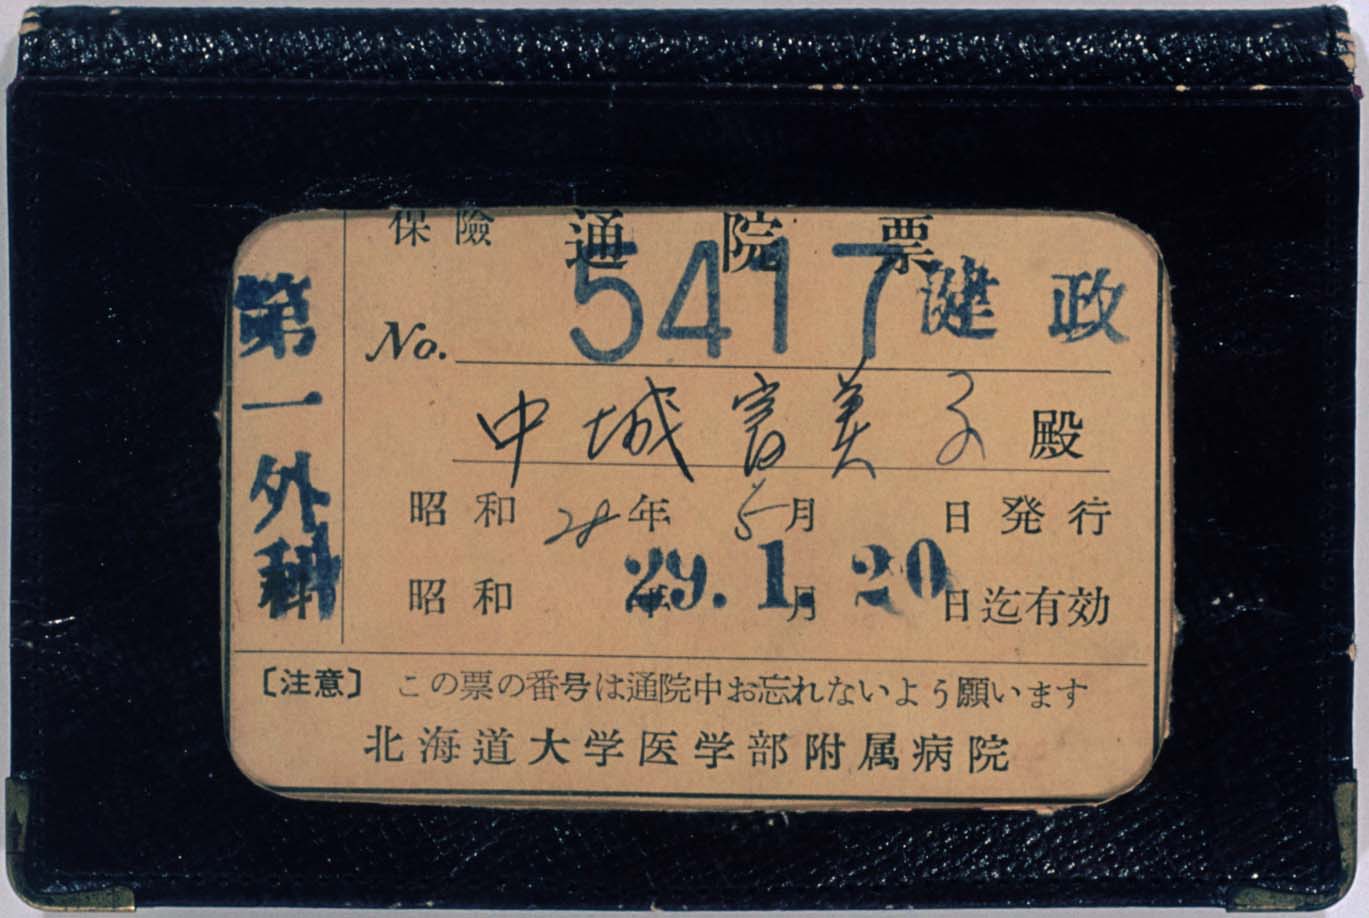 保険 通院票
第一外科
No. 5417 健 政
中城富美子 殿
昭和28年5月 日発行
昭和29年1.月20日迄有効
〔注意〕 この票の番号は通院中お忘れないよう願います
北海道大学医学部附属病院